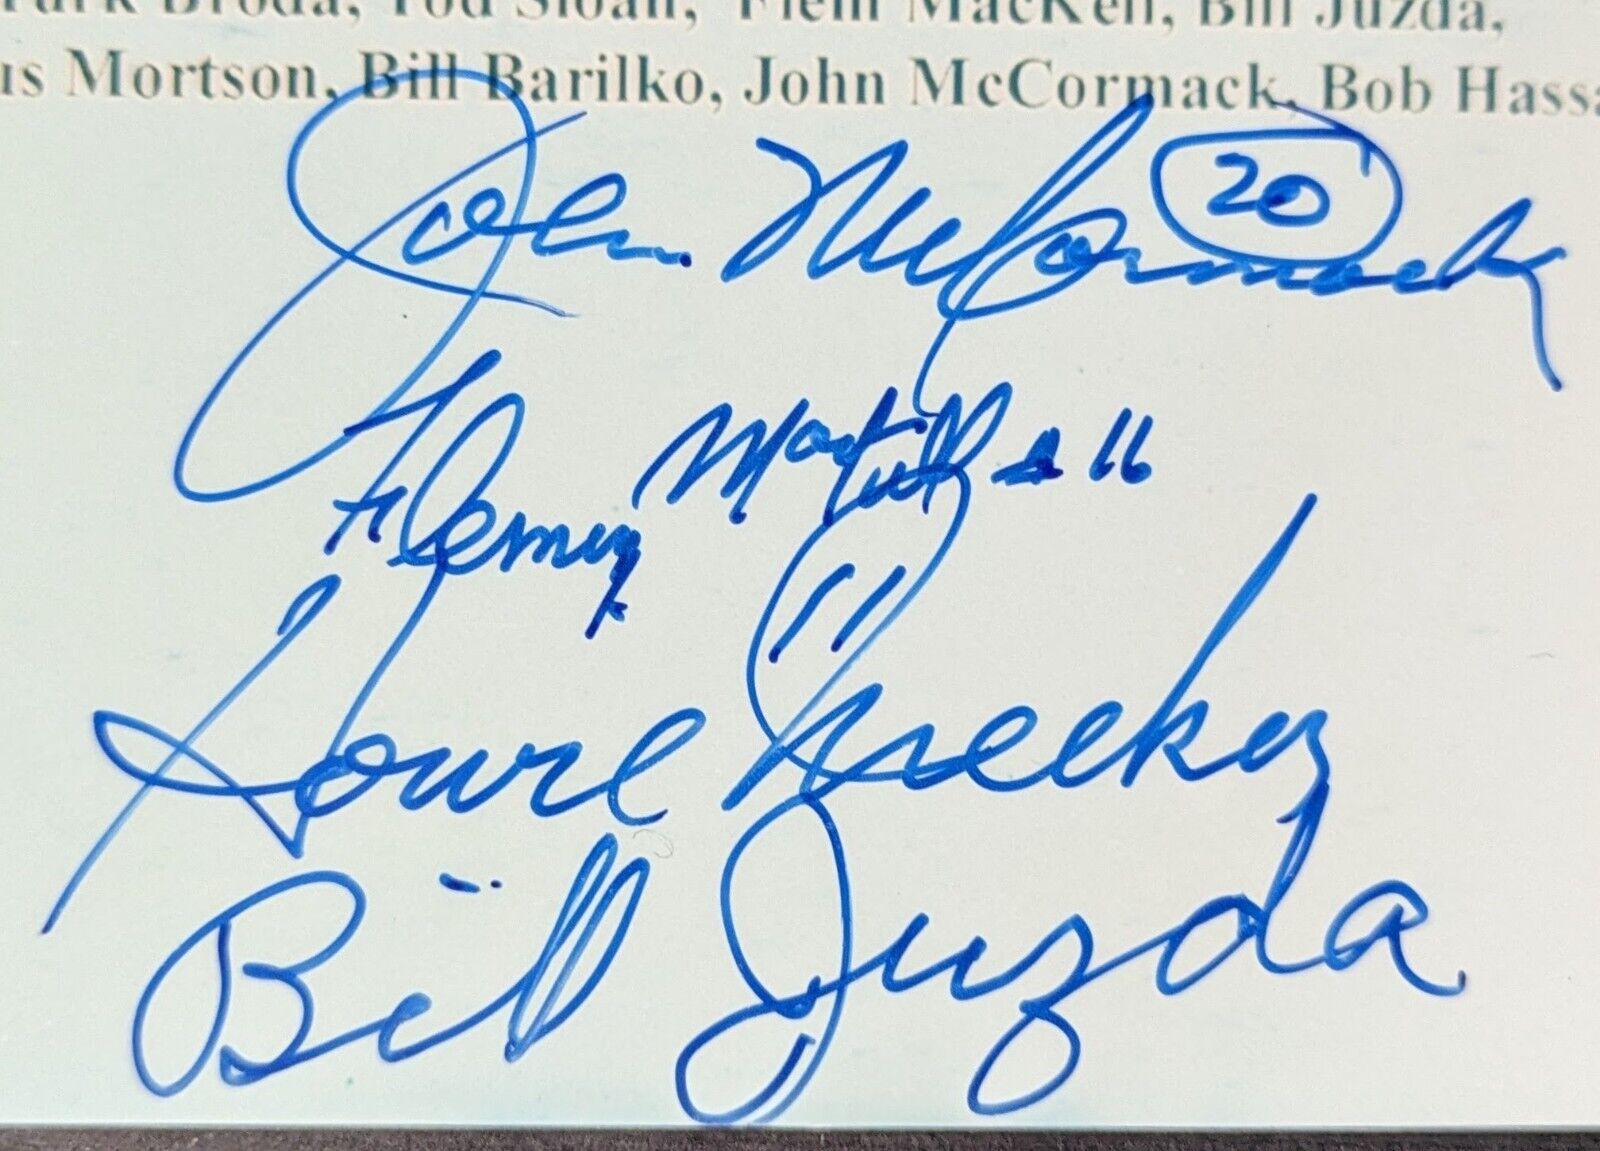 Turk Broda, Tod Sloan, Flem MacKell, Bill Juzda,
us Mortson, Bill Barilko, John McCormack, Bob Hassa
John McCormack 20
Fleming Mackell 16
11
Howie Meeker
Bill Juzda